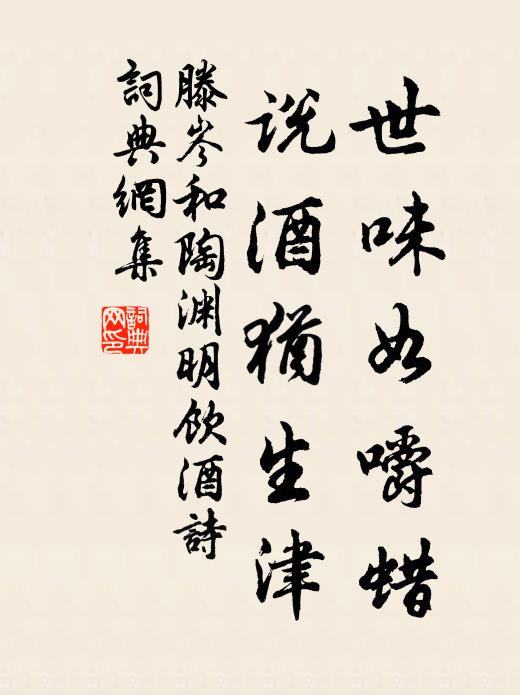 世味如嚼蜡
说酒犹生津
滕岑和陶渊明饮酒詩
詞典網集
詞典
网印